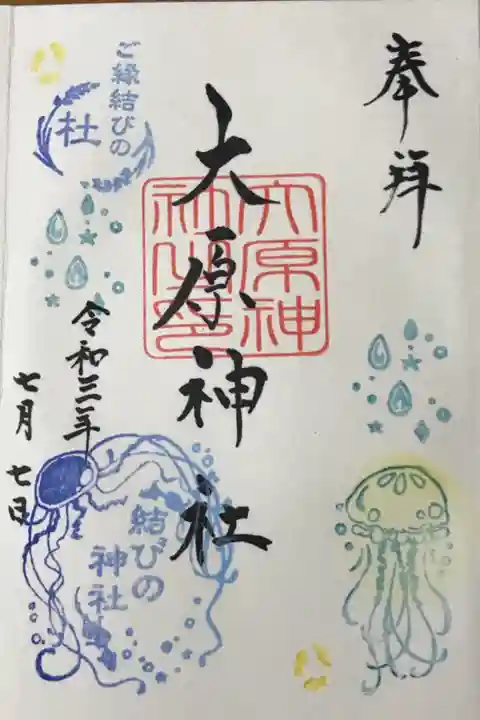 奉拝
大原神社
大原神
社之印
ご縁結びの
杜
令和三年
七月七日
結びの
神社